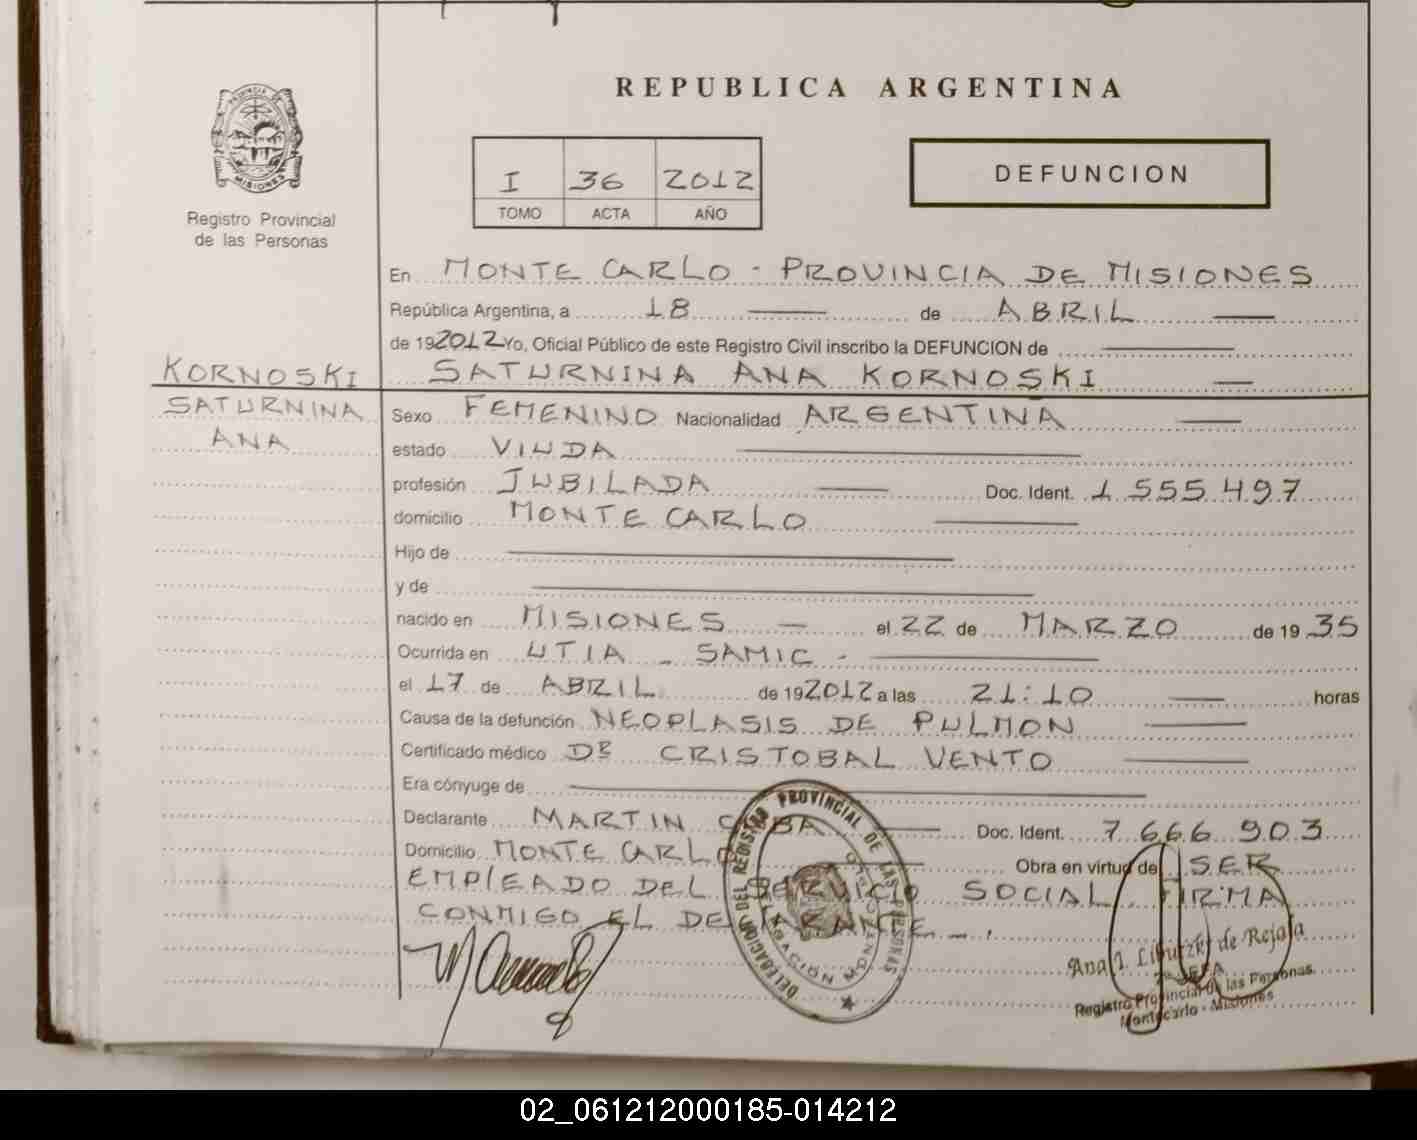 REPUBLICA ARGENTINA
PROVINCIA DE
MISIONES
Registro Provincial
de las Personas
I 36 2012
TOMO ACTA AÑO
DEFUNCION
En MONTE CARLO - PROVINCIA DE MISIONES
República Argentina, a 18 de ABRIL
de 192012 Yo, Oficial Público de este Registro Civil inscribo la DEFUNCION de
SATURNINA ANA KORNOSKI
KORNOSKI
SATURNINA
ANA
Sexo FEMENINO Nacionalidad ARGENTINA
estado VIUDA
profesión JUBILADA Doc. Ident. 1.555.497
domicilio MONTE CARLO
Hijo de
y de
nacido en MISIONES el 22 de MARZO de 19 35
Ocurrida en UTIA - SAMIC -
el 17 de ABRIL de 192012 a las 21:10 horas
Causa de la defunción NEOPLASIS DE PULMON
Certificado médico DR CRISTOBAL VENTO
Era cónyuge de
Declarante MARTIN Doc. Ident. 7.666.903
Domicilio MONTE CARLO Obra en virtud de SER
EMPLEADO DEL SERVICIO SOCIAL. FIRMA
CONMIGO EL DECLARANTE - .
DELEGACION DEL REGISTRO PROVINCIAL DE LAS PERSONAS
Ana de Rejala
JEFA
Registro Provincial de las Personas
Montecarlo - Misiones
02_061212000185-014212